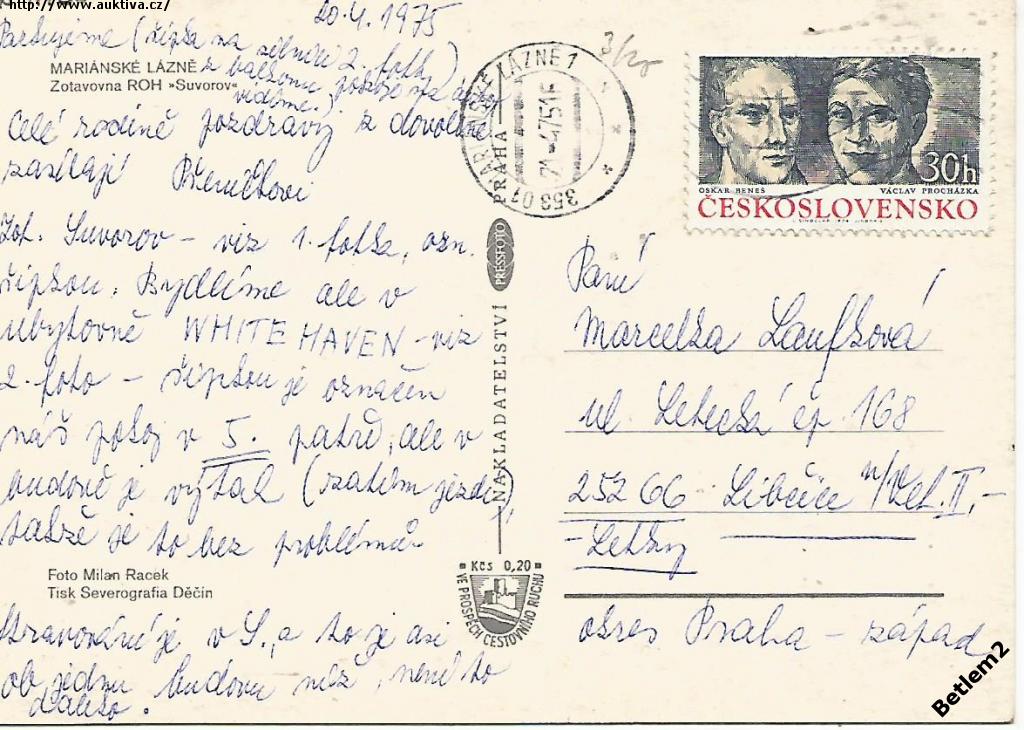 http://www.auktiva.cz/
20.4.1975
Parkujeme (šipka na silnici 2. fotka)
z balkonu
vidíme.
MARIÁNSKÉ LÁZNĚ
Zotavovna ROH »Suvorov«
Celé rodině pozdravy z dovolené
zasílají Břeničkovi
Zot. Suvorov – viz 1. fotka, ozn.
šipkou. Bydlíme ale v
ubytovně WHITE HAVEN – viz
2. foto – šipkou je označen
náš pokoj v 5. patře, ale v
budově je výtah (zatím jezdí),
takže je to bez problémů.
Foto Milan Racek
Tisk Severografia Děčín
Stravování je v S., a to je asi
ob jednu budovu níž, není to
daleko.
MARIÁNSKÉ LÁZNĚ 1
353 01
21.-4.75
PRAHA — NAKLADATELSTVÍ PRESSFOTO
Kčs 0,20
VE PROSPĚCH CESTOVNÍHO RUCHU
OSKAR BENEŠ
VÁCLAV PROCHÁZKA
30h
ČESKOSLOVENSKO
Paní
Marcelka Laufková
ul. Letecká čp. 168
252 66 Libčice n/Vlt. II.–
– Letky
okres Praha – západ
Betlem2